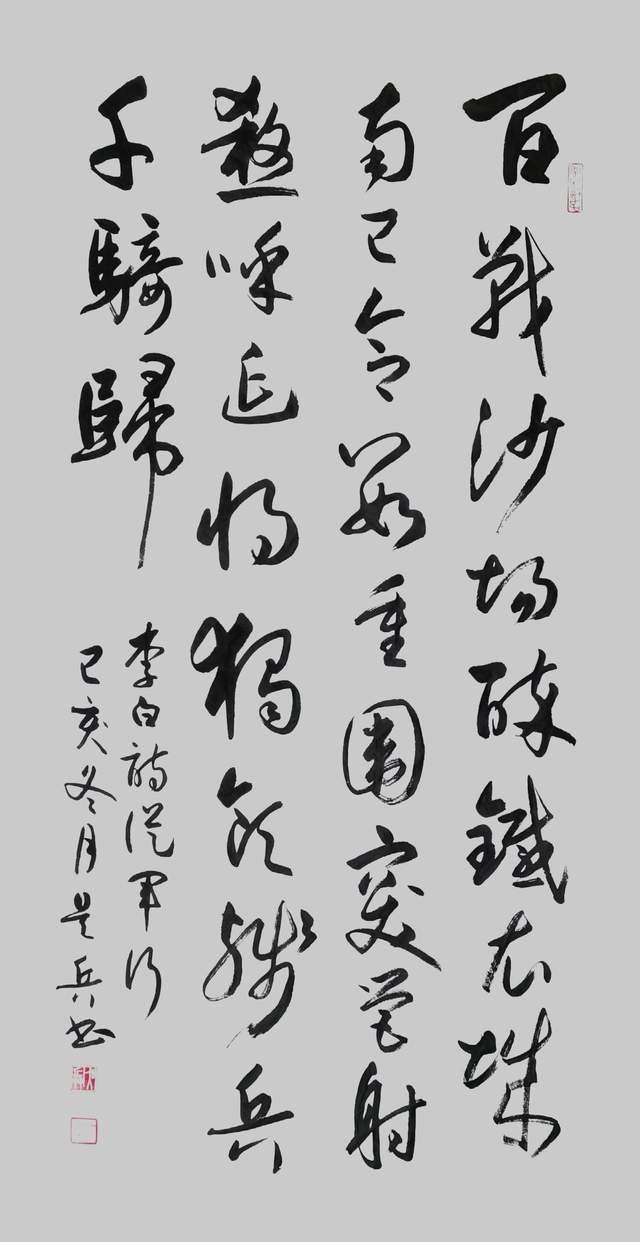 百戰沙場碎鐵衣城
南已合數重圍突營射
殺呼延將獨領殘兵
千騎歸
李白詩從軍行
己亥冬月 兵书